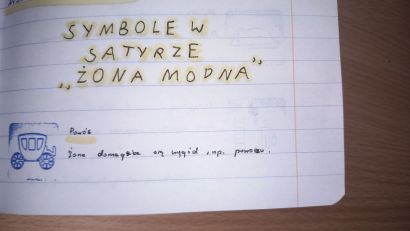 SYMBOLE W
SATYRZE
„ŻONA MODNA"
Powóz
Żona domagała się wygód, np. powozu.